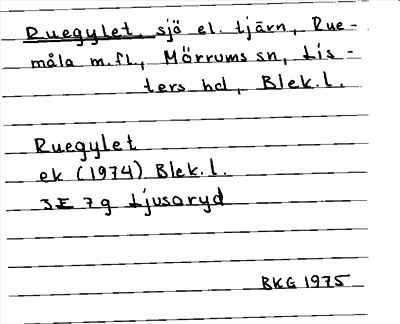 Ruegylet, sjö el. tjärn, Rue-
måla m.fl., Mörrums sn, Lis-
ters hd, Blek.l.
Ruegylet
ek (1974) Blek.l.
3E 7g Ljusaryd
BKG 1975